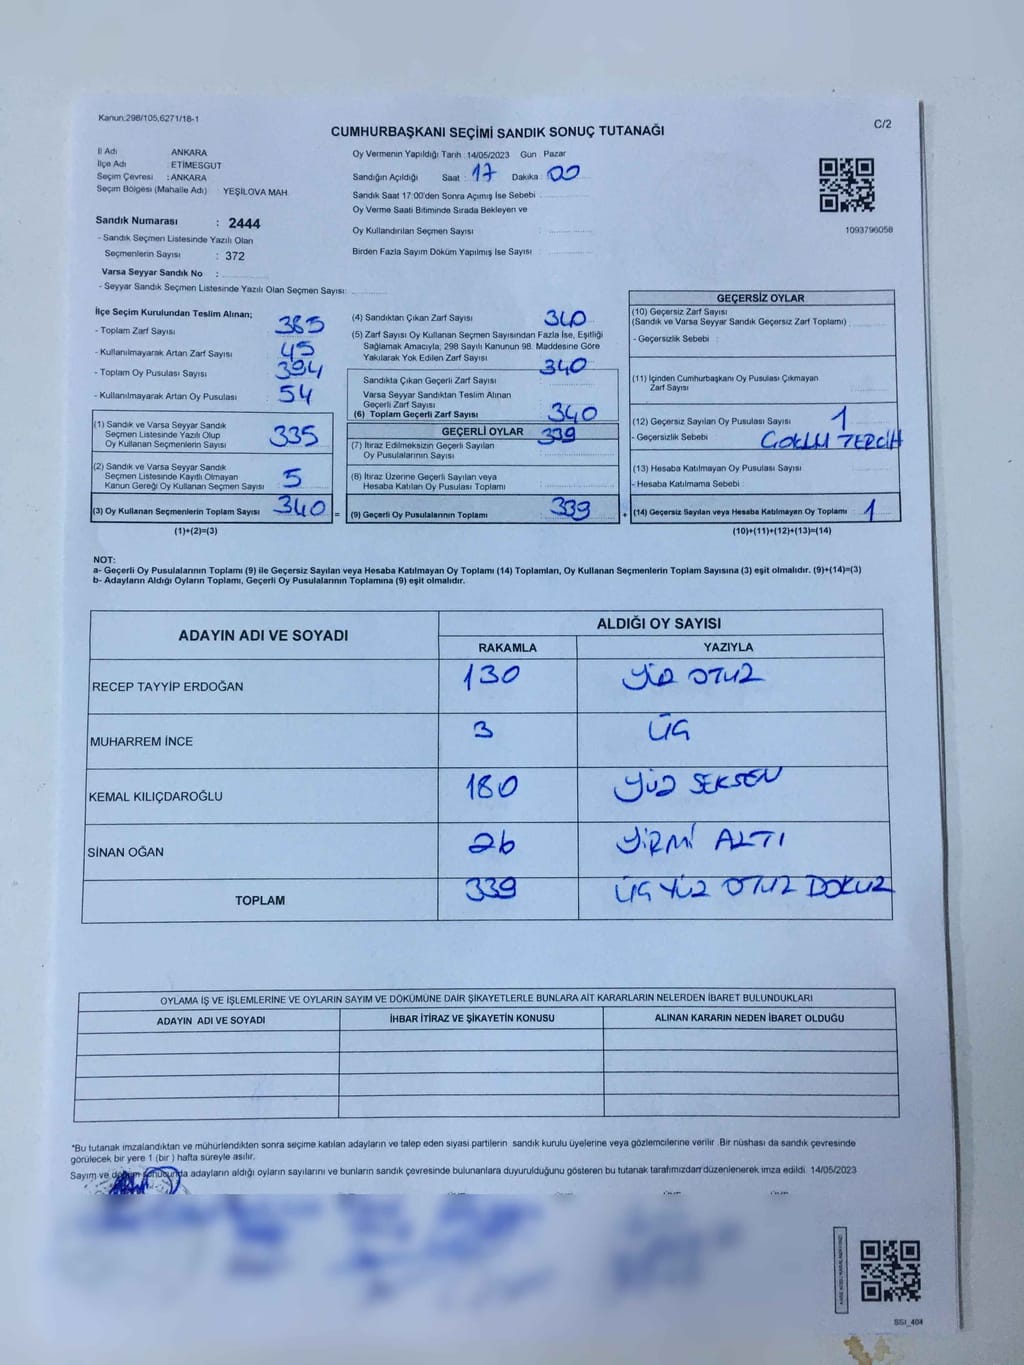 Kanun:298/105,6271/18-1
C/2
CUMHURBAŞKANI SEÇİMİ SANDIK SONUÇ TUTANAĞI
İl Adı ANKARA
İlçe Adı : ETİMESGUT
Seçim Çevresi : ANKARA
Seçim Bölgesi (Mahalle Adı) : YEŞİLOVA MAH.
Sandık Numarası : 2444
- Sandık Seçmen Listesinde Yazılı Olan
Seçmenlerin Sayısı : 372
Varsa Seyyar Sandık No :
- Seyyar Sandık Seçmen Listesinde Yazılı Olan Seçmen Sayısı:
Oy Vermenin Yapıldığı Tarih :14/05/2023 Gün Pazar
Sandığın Açıldığı Saat : 17 Dakika : 00
Sandık Saat 17:00'den Sonra Açımış İse Sebebi :
Oy Verme Saati Bitiminde Sırada Bekleyen ve
Oy Kullandırılan Seçmen Sayısı :
Birden Fazla Sayım Döküm Yapılmış İse Sayısı :
1093796058
İlçe Seçim Kurulundan Teslim Alınan;
- Toplam Zarf Sayısı 385
- Kullanılmayarak Artan Zarf Sayısı 45
- Toplam Oy Pusulası Sayısı 394
- Kullanılmayarak Artan Oy Pusulası 54
(1) Sandık ve Varsa Seyyar Sandık
Seçmen Listesinde Yazılı Olup
Oy Kullanan Seçmenlerin Sayısı 335
(2) Sandık ve Varsa Seyyar Sandık
Seçmen Listesinde Kayıtlı Olmayan
Kanun Gereği Oy Kullanan Seçmen Sayısı 5
(3) Oy Kullanan Seçmenlerin Toplam Sayısı 340 =
(1)+(2)=(3)
(4) Sandıktan Çıkan Zarf Sayısı 340
(5) Zarf Sayısı Oy Kullanan Seçmen Sayısından Fazla İse, Eşitliği
Sağlamak Amacıyla, 298 Sayılı Kanunun 98. Maddesine Göre
Yakılarak Yok Edilen Zarf Sayısı
340
Sandıkta Çıkan Geçerli Zarf Sayısı
Varsa Seyyar Sandıktan Teslim Alınan
Geçerli Zarf Sayısı
(6) Toplam Geçerli Zarf Sayısı 340
GEÇERLİ OYLAR
(7) İtiraz Edilmeksizin Geçerli Sayılan 339
Oy Pusulalarının Sayısı
(8) İtiraz Üzerine Geçerli Sayılan veya
Hesaba Katılan Oy Pusulası Toplamı
(9) Geçerli Oy Pusulalarının Toplamı 339 +
GEÇERSİZ OYLAR
(10) Geçersiz Zarf Sayısı
(Sandık ve Varsa Seyyar Sandık Geçersiz Zarf Toplamı)
- Geçersizlik Sebebi :
(11) İçinden Cumhurbaşkanı Oy Pusulası Çıkmayan
Zarf Sayısı
(12) Geçersiz Sayılan Oy Pusulası Sayısı 1
- Geçersizlik Sebebi : ÇOKLU TERCİH
(13) Hesaba Katılmayan Oy Pusulası Sayısı
- Hesaba Katılmama Sebebi :
(14) Geçersiz Sayılan veya Hesaba Katılmayan Oy Toplamı 1
(10)+(11)+(12)+(13)=(14)
NOT:
a- Geçerli Oy Pusulalarının Toplamı (9) ile Geçersiz Sayılan veya Hesaba Katılmayan Oy Toplamı (14) Toplamları, Oy Kullanan Seçmenlerin Toplam Sayısına (3) eşit olmalıdır. (9)+(14)=(3)
b- Adayların Aldığı Oyların Toplamı, Geçerli Oy Pusulalarının Toplamına (9) eşit olmalıdır.
ADAYIN ADI VE SOYADI ALDIĞI OY SAYISI
RAKAMLA YAZIYLA
RECEP TAYYİP ERDOĞAN 130 YÜZ OTUZ
MUHARREM İNCE 3 ÜÇ
KEMAL KILIÇDAROĞLU 180 YÜZ SEKSEN
SİNAN OĞAN 26 YİRMİ ALTI
TOPLAM 339 ÜÇ YÜZ OTUZ DOKUZ
OYLAMA İŞ VE İŞLEMLERİNE VE OYLARIN SAYIM VE DÖKÜMÜNE DAİR ŞİKAYETLERLE BUNLARA AİT KARARLARIN NELERDEN İBARET BULUNDUKLARI
ADAYIN ADI VE SOYADI İHBAR İTİRAZ VE ŞİKAYETİN KONUSU ALINAN KARARIN NEDEN İBARET OLDUĞU
*Bu tutanak imzalandıktan ve mühürlendikten sonra seçime katılan adayların ve talep eden siyasi partilerin sandık kurulu üyelerine veya gözlemcilerine verilir .Bir nüshası da sandık çevresinde
görülecek bir yere 1 (bir ) hafta süreyle asılır.
Sayım ve döküm sonucunda adayların aldığı oyların sayılarını ve bunların sandık çevresinde bulunanlara duyurulduğunu gösteren bu tutanak tarafımızdan düzenlenerek imza edildi. 14/05/2023
SSI_404